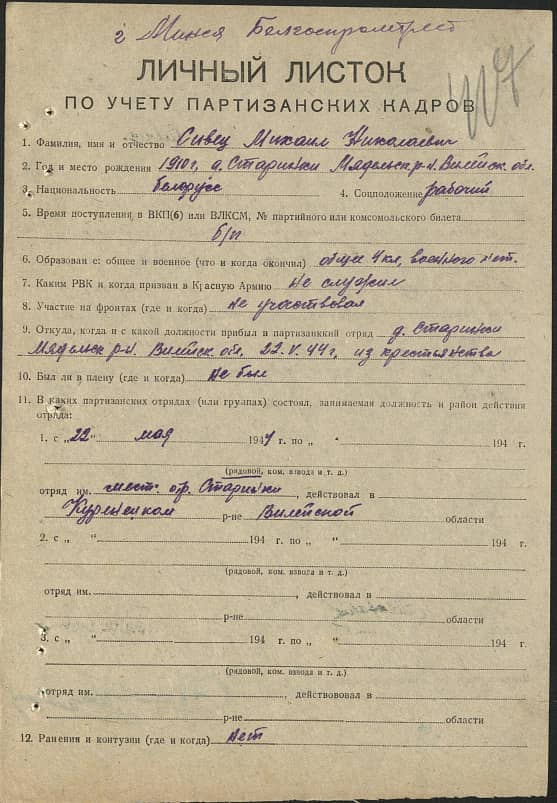 г Минск Белгоспромтрест
ЛИЧНЫЙ ЛИСТОК
ПО УЧЕТУ ПАРТИЗАНСКИХ КАДРОВ
1. Фамилия, имя и отчество Сивец Михаил Николаевич
2. Год и место рождения 1910 г, д. Старинки Мядельск. р-н. Вилейск. обл.
3. Национальность белорусс 4. Соцположение рабочий
5. Время поступления в ВКП(б) или ВЛКСМ, № партийного или комсомольского билета
б/п
6. Образован е: общее и военное (что и когда окончил) общее 4 кл, военного нет.
7. Каким РВК и когда призван в Красную Армию не служил
8. Участие на фронтах (где и когда) не участвовал
9. Откуда, когда и с какой должности прибыл в партизанкий отряд д. Старинки
Мядельск р-н. Вилейск. обл. 22.V.44 г, из крестьянства
10. Был ли в плену (где и когда) не был
11. В каких партизанских отрядах (или группах) состоял, занимаемая должность и район действия
отряда:
1. с „22" мая 1944 г. по „ " 194 г.
(рядовой, ком. взвода и т. д.)
отряд им. мест. отр. Старинки действовал в
Куренецком р-не Вилейской области
2. с „ " 194 г. по „ " 194 г.
(рядовой, ком. взвода и т. д.)
отряд им. , действовал в
р-не области
3. с „ " 194 г. по „ " 194 г.
(рядовой, ком. взвода и т. д.)
отряд им. , действововал в
р-не области
12. Ранения и контузии (где и когда) нет